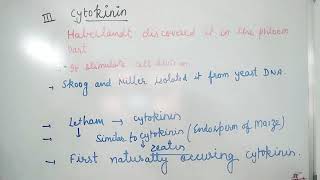 III cytokinin
Haberlandt discovered it in the phloem
Part
→ It stimulate cell division
→ Skoog and Miller isolated it from yeast DNA.
→ Letham → cytokinin
→ Similar to cytokinin (Endosperm of Maize)
zeatin
→ First naturally occuring cytokinin.